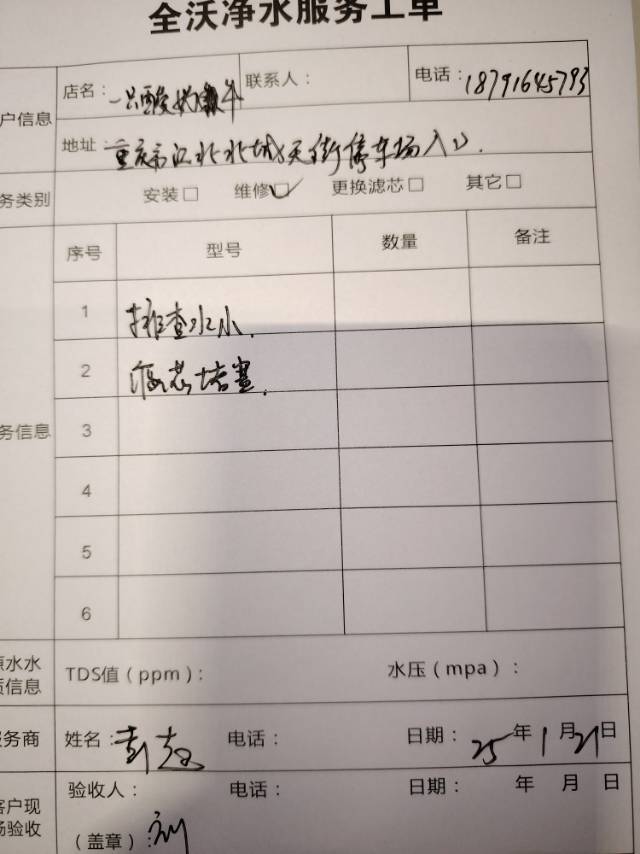 全沃净水服务工单
户信息
店名：一只酸奶牛 联系人： 电话：18791645793
地址：重庆市江北北城天街停车场入口.
务类别 安装□ 维修☑ 更换滤芯□ 其它□
序号 型号 数量 备注
1 排查水小.
2 滤芯堵塞.
务信息 3
4
5
6
原水水
质信息 TDS值（ppm）： 水压（mpa）：
服务商 姓名： 电话： 日期：25年1月21日
客户现
场验收 验收人： 电话： 日期： 年 月 日
（盖章）刘